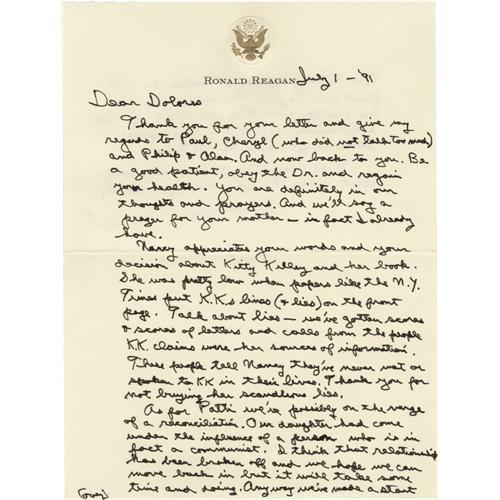 RONALD REAGAN July 1 - '91
Dear Dolores
Thank you for your letter and give my
regards to Paul, Cheryl (who did not talk too much)
and Philip & Alan. And now back to you. Be
a good patient, obey the Dr. and regain
your health. You are definitely in our
thoughts and prayers. And we'll say a
prayer for your mother – in fact I already
have.
Nancy appreciates your words and your
decision about Kitty Kelley and her book.
She was pretty low when papers like the N.Y.
Times put K.K.'s lines (& lies) on the front
page. Talk about lies – we've gotten scores
& scores of letters and calls from the people
K.K. claims were her sources of information.
These people tell Nancy they've never met or
spoken to KK in their lives. Thank you for
not buying her scandlous lies.
As for Patti we're possibly on the verge
of a reconciliation. Our daughter had come
under the influence of a person who is in
fact a communist. I think that relationship
has been broken off and we hope we can
move back in but it will take some
time and doing. Anyway we've made a start
(over)